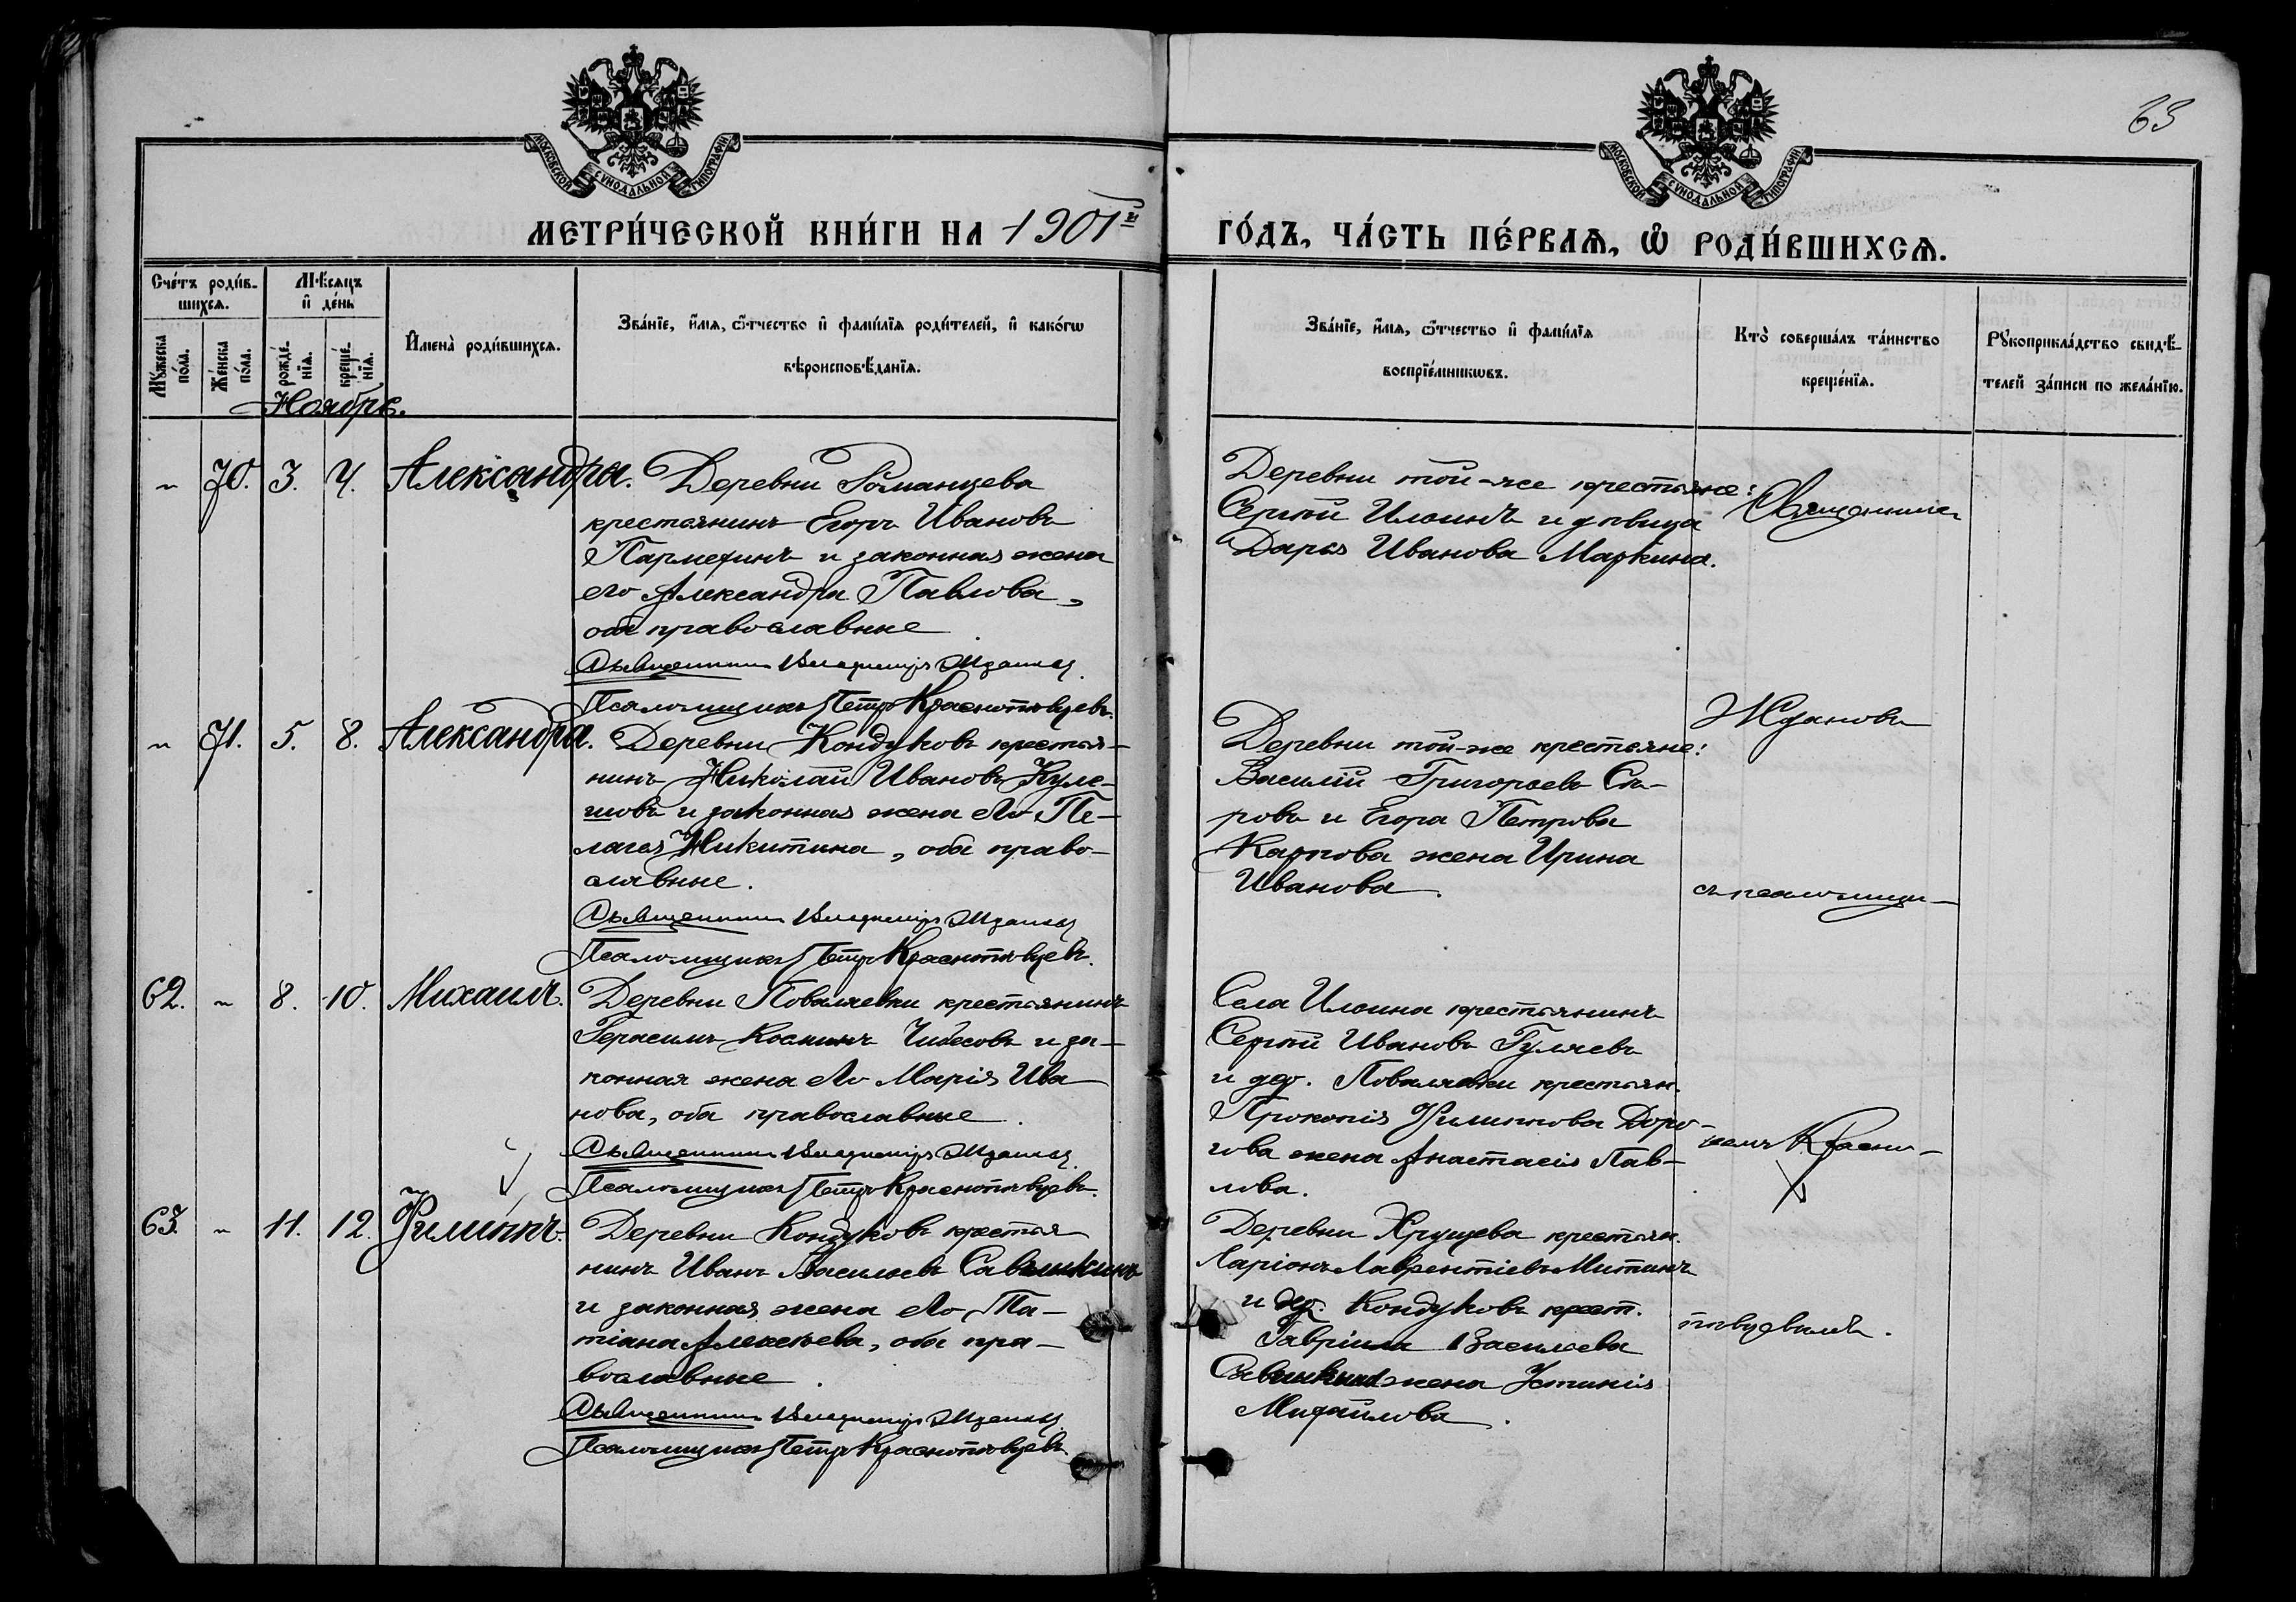 63
МОСКОВСКОЙ СѴНОДАЛЬНОЙ ТИПОГРАФІИ
МОСКОВСКОЙ СѴНОДАЛЬНОЙ ТИПОГРАФІИ
МЕТРИ́ЧЕСКОЙ КНИ́ГИ НА 1901й
ГО́ДЪ, ЧА́СТЬ ПЕ́РВАѦ, Ѡ҆ РОДИ́ВШИХСѦ.
Сче́тъ роди́в-
шихсѧ.
Мѣ́сѧцъ
и҆ де́нь
Мꙋ́жеска по́ла.
Же́нска по́ла.
рожде́-
нїѧ.
креще́-
нїѧ.
И҆мена̀ роди́вшихсѧ.
Зва́нїе, и҆́мѧ, ѻ҆́тчество и҆ фами́лїѧ роди́телей, и҆ како́гѡ
вѣроисповѣ́данїѧ.
Зва́нїе, и҆́мѧ, ѻ҆́тчество и҆ фами́лїѧ
воспрїе́мникѡвъ.
Кто̀ соверша́лъ та́инство
креще́нїѧ.
Рꙋкоприкла́дство свидѣ́-
телей за́писи по жела́нїю.
Ноябрь.
" 70. 3. 4. Александра. Деревни Романцева
крестьянинъ Егоръ Ивановъ
и законная жена
его Александра Павлова,
оба православные.
Священникъ Владиміръ Ждановъ
Псаломщикъ Петръ Краснопѣвцевъ.
Деревни той-же крестьяне:
Сергѣй Ильинъ и дѣвица
Дарья Иванова Маркина.
Священникъ
" 71. 5. 8. Александра. Деревни Кондуковъ крестья-
нинъ Николай Ивановъ Куле-
шовъ и законная жена его Пе-
лагея Никитина, оба право-
славные.
Священникъ Владиміръ Ждановъ
Псаломщикъ Петръ Краснопѣвцевъ.
Деревни той-же крестьяне:
Василій Григорьевъ Ста-
ровъ и Егора Петрова
Карпова жена Ирина
Иванова.
Ждановъ
съ псаломщи-
62. " 8. 10. Михаилъ. Деревни Поваляевки крестьянинъ
Герасимъ Косминъ Чибесовъ и за-
конная жена его Марія Ива-
нова, оба православные.
Священникъ Владиміръ Ждановъ
Псаломщикъ Петръ Краснопѣвцевъ.
Села Ильина крестьянинъ
Сергѣй Ивановъ Гуляевъ
и дер. Поваляевки крестьян.
Прокопія Филиппова Доро-
гова жена Анастасія Пав-
лова.
комъ Красно-
63. " 11. 12. Филиппъ. Деревни Кондуковъ крестья
нинъ Иванъ Васильевъ Савинкинъ
и законная жена его Та-
тіана Алексѣева, оба пра-
вославные.
Священникъ Владиміръ Ждановъ
Псаломщикъ Петръ Краснопѣвцевъ
Деревни Хрущева крестьян.
Ларіонъ Лаврентіевъ Митинъ
и дер. Кондуковъ крест.
Гавріила Васильева
Савинкина жена Устинія
Михайлова.
пѣвцевымъ.